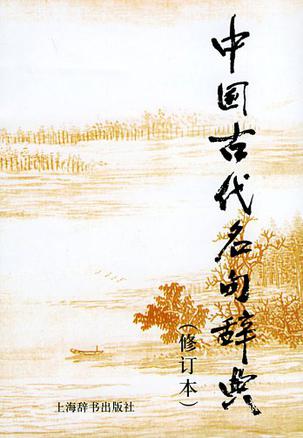 中国古代名句辞典
(修订本)
上海辞书出版社